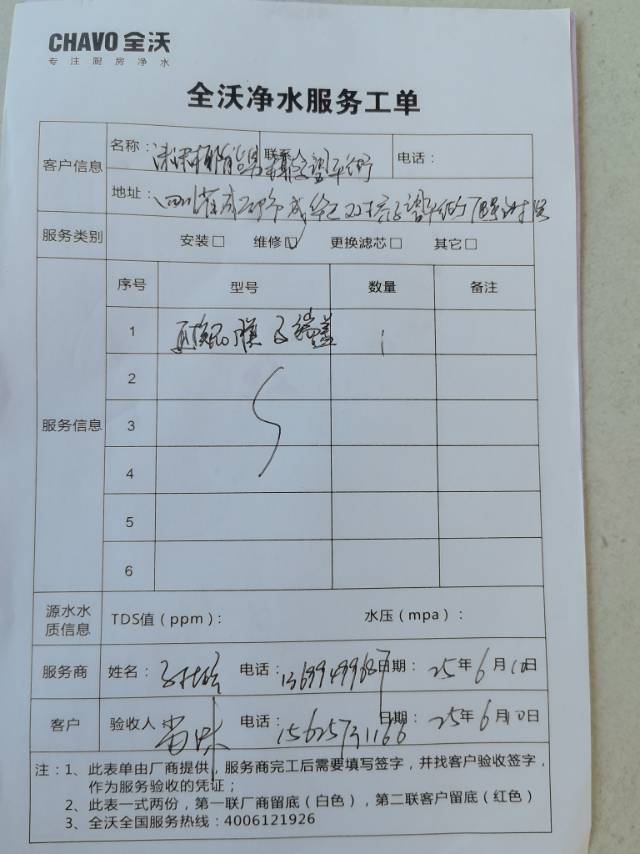 CHAVO 全沃
专注厨房净水
全沃净水服务工单
客户信息
名称：
联系人
电话：
地址：四川省成都市成华区
服务类别 安装□ 维修☑ 更换滤芯□ 其它□
服务信息
序号 型号 数量 备注
1 1
2
3
4
5
6
源水水质信息 TDS值（ppm）： 水压（mpa）：
服务商 姓名： 电话： 日期：25年6月10日
客户 验收人： 电话：15625731166 日期：25年6月10日
注：1、此表单由厂商提供，服务商完工后需要填写签字，并找客户验收签字，
作为服务验收的凭证；
2、此表一式两份，第一联厂商留底（白色），第二联客户留底（红色）
3、全沃全国服务热线：4006121926